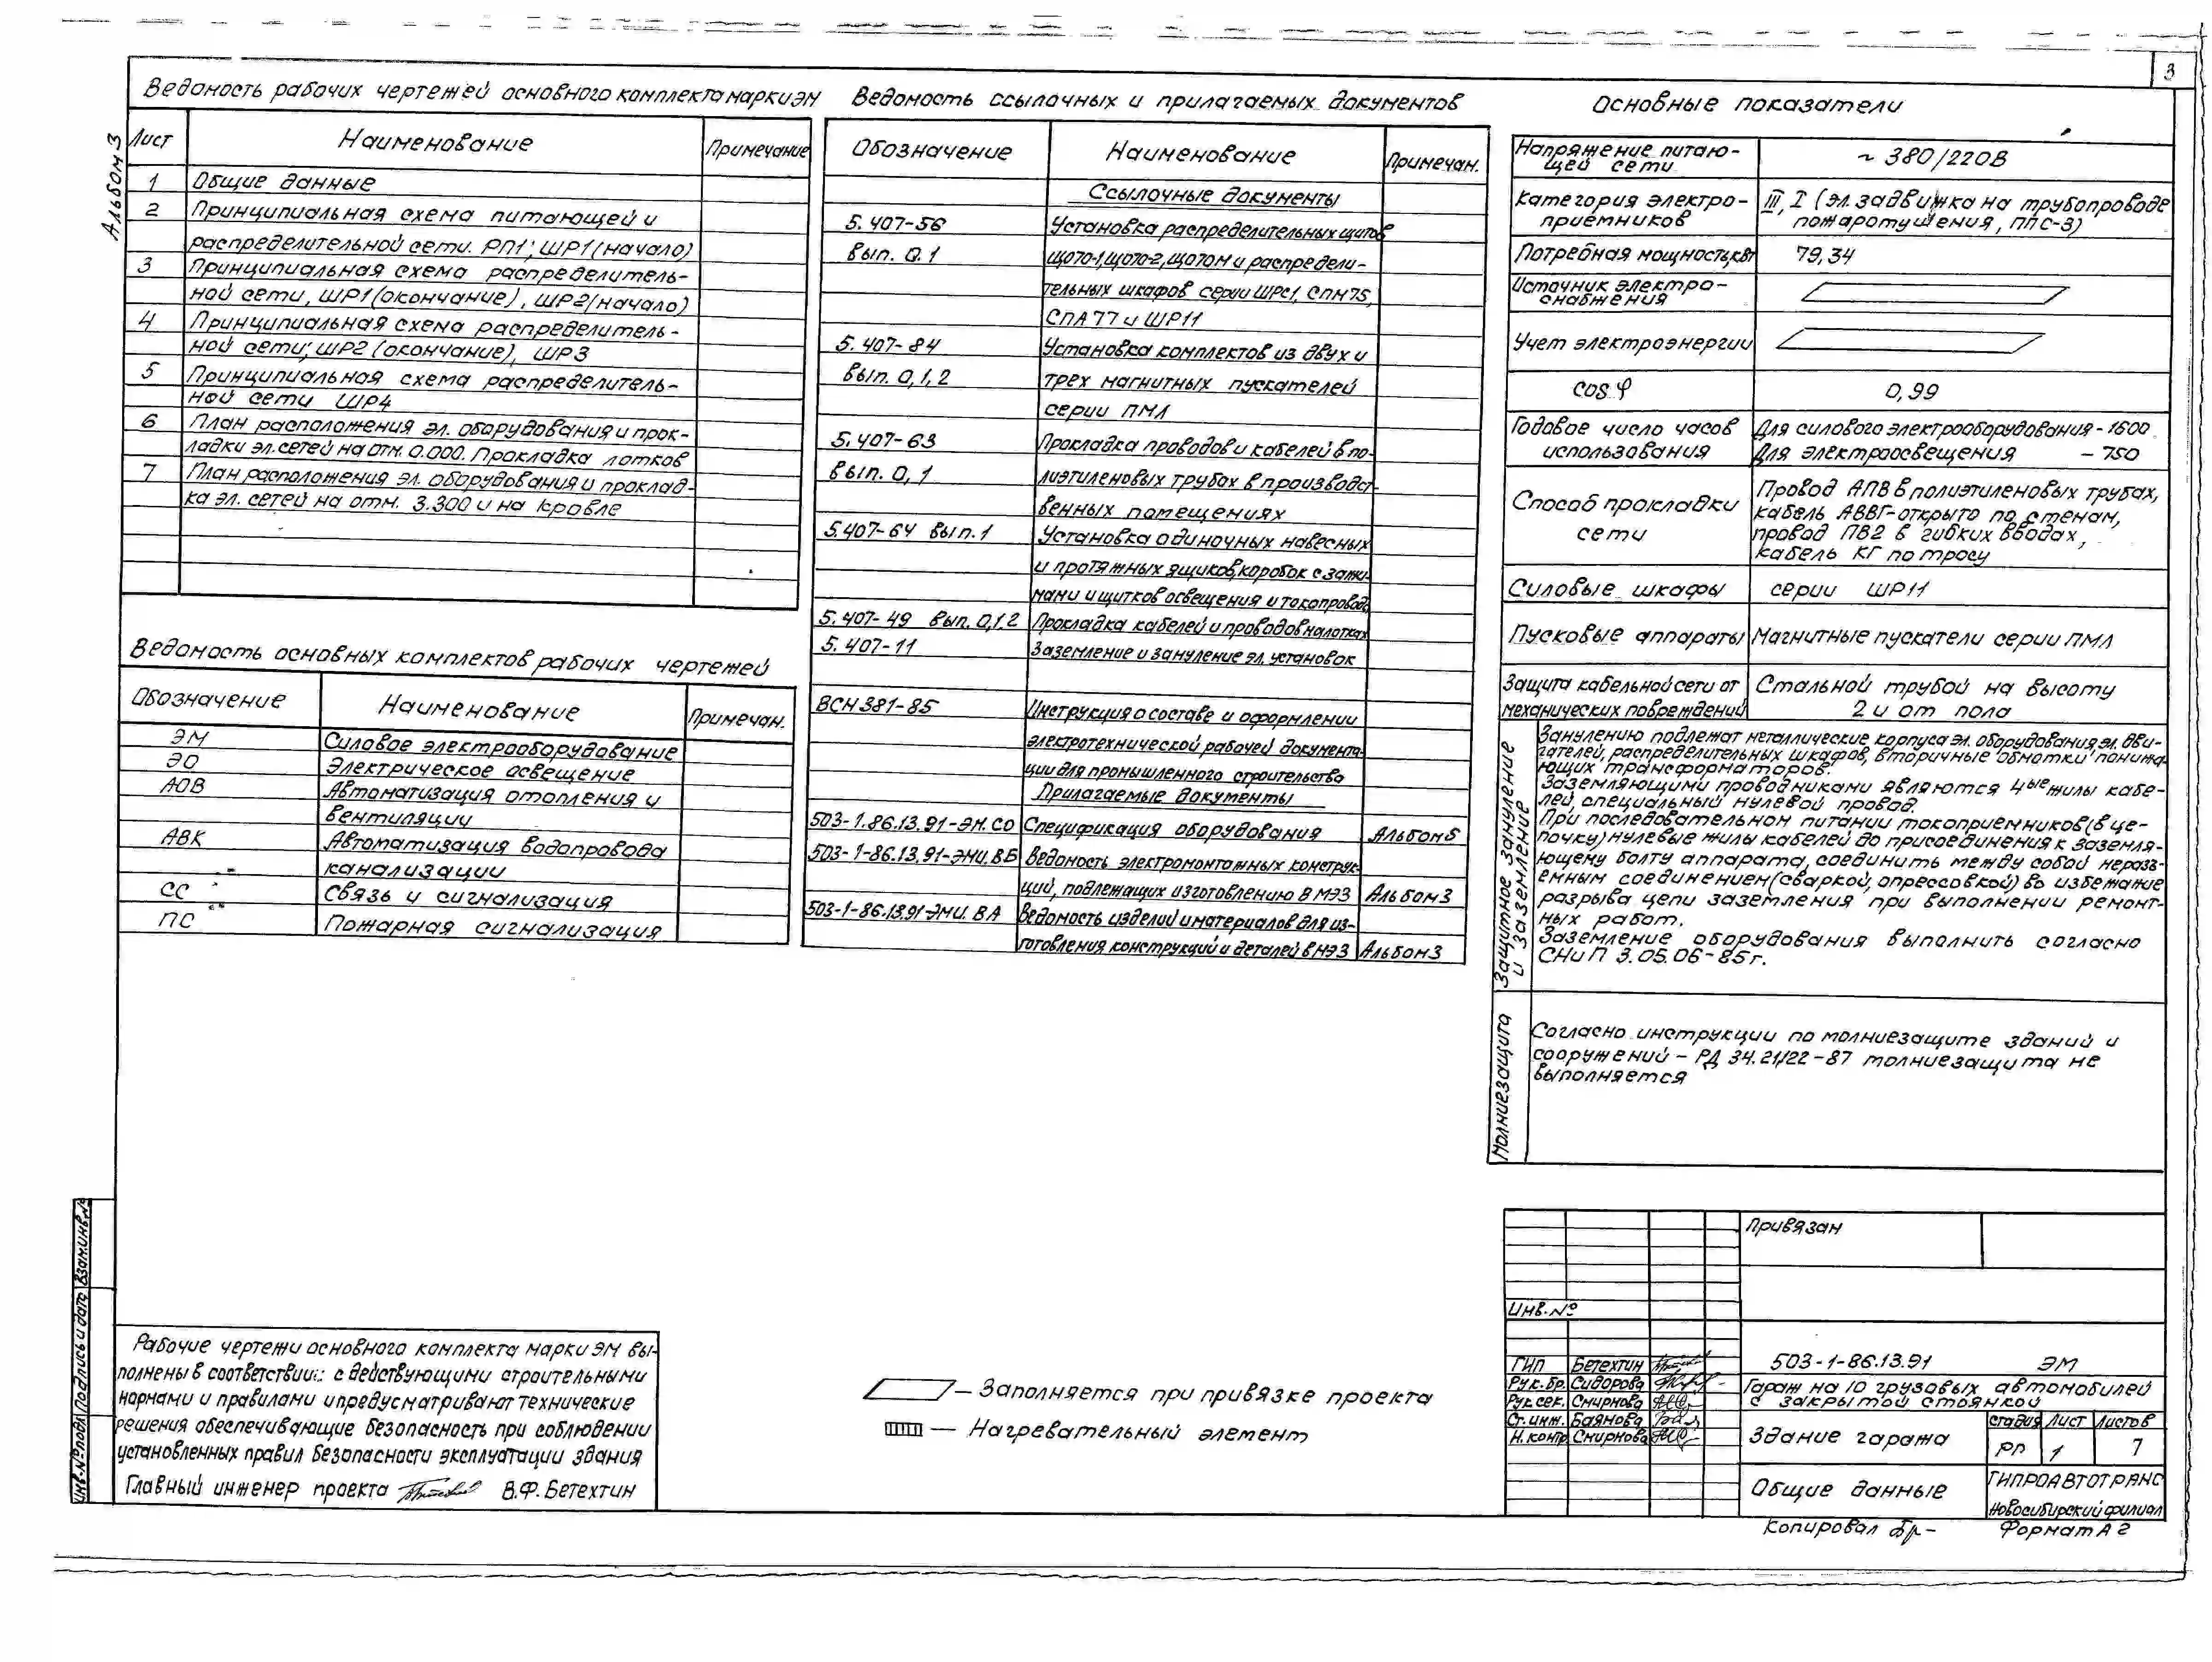 3
Альбом 3
Ведомость рабочих чертежей основного комплекта марки ЭМ
Лист Наименование Примечание
1 Общие данные
2 Принципиальная схема питающей и
распределительной сети. РП1; ШР1 (начало)
3 Принципиальная схема распределитель-
ной сети, ШР1 (окончание), ШР2 (начало)
4 Принципиальная схема распределитель-
ной сети; ШР2 (окончание), ШР3
5 Принципиальная схема распределитель-
ной сети ШР4
6 План расположения эл. оборудования и прок-
ладки эл. сетей на отм. 0.000. Прокладка лотков
7 План расположения эл. оборудования и проклад-
ка эл. сетей на отм. 3.300 и на кровле
Ведомость основных комплектов рабочих чертежей
Обозначение Наименование Примечан.
ЭМ Силовое электрооборудование
ЭО Электрическое освещение
АОВ Автоматизация отопления и
вентиляции
АВК Автоматизация водопровода
канализации
СС Связь и сигнализация
ПС Пожарная сигнализация
Ведомость ссылочных и прилагаемых документов
Обозначение Наименование Примечан.
Ссылочные документы
5.407-56 Установка распределительных щитов
вып. 0.1 ЩО70-1, ЩО70-2, ЩО70М и распредели-
тельных шкафов серии ШРС1, СПМ75,
СПА77 и ШР11
5.407-84 Установка комплектов из двух и
вып. 0,1,2 трех магнитных пускателей
серии ПМЛ
5.407-63 Прокладка проводов и кабелей в по-
вып. 0,1 лиэтиленовых трубах в производст-
венных помещениях
5.407-64 вып.1 Установка одиночных навесных
и протяжных ящиков, коробок с зажи-
мами и щитков освещения и токопровод.
5.407-49 вып. 0,1,2 Прокладка кабелей и проводов на лотках
5.407-11 Заземление и зануление эл. установок
ВСН 381-85 Инструкция о составе и оформлении
электротехнической рабочей документа-
ции для промышленного строительства
Прилагаемые документы
503-1.86.13.91-ЭМ.СО Спецификация оборудования Альбом 5
503-1-86.13.91-ЭМИ.ВБ Ведомость электромонтажных конструк-
ций, подлежащих изготовлению в МЭЗ Альбом 3
503-1-86.13.91-ЭМИ.ВА Ведомость изделий и материалов для из-
готовления конструкций и деталей в МЭЗ Альбом 3
Основные показатели
Напряжение питаю-
щей сети ~ 380/220В
Категория электро-
приемников III, I (эл. задвижка на трубопроводе
пожаротушения, ППС-3)
Потребная мощность, кВт 79,34
Источник электро-
снабжения
Учет электроэнергии
cos φ 0,99
Годовое число часов
использования Для силового электрооборудования - 1600
Для электроосвещения - 750
Способ прокладки
сети Провод АПВ в полиэтиленовых трубах,
кабель АВВГ-открыто по стенам,
провод ПВ2 в гибких вводах,
кабель КГ по тросу
Силовые шкафы серии ШР11
Пусковые аппараты Магнитные пускатели серии ПМЛ
Защита кабельной сети от
механических повреждений Стальной трубой на высоту
2 м от пола
Защитное зануление
и заземление
Занулению подлежат металлические корпуса эл. оборудования, эл. дви-
гателей, распределительных шкафов, вторичные обмотки понижа-
ющих трансформаторов.
Заземляющими проводниками являются 4ые жилы кабе-
лей, специальный нулевой провод.
При последовательном питании токоприемников (в це-
почку) нулевые жилы кабелей до присоединения к заземля-
ющему болту аппарата, соединить между собой неразъ-
емным соединением (сваркой, опрессовкой) во избежание
разрыва цепи заземления при выполнении ремонт-
ных работ.
Заземление оборудования выполнить согласно
СНиП 3.05.06-85г.
Молниезащита
Согласно инструкции по молниезащите зданий и
сооружений - РД 34.21/22-87 молниезащита не
выполняется
Взам.инв.№
Подпись и дата
Инв.№ подл
Рабочие чертежи основного комплекта марки ЭМ вы-
полнены в соответствии: с действующими строительными
нормами и правилами и предусматривают технические
решения обеспечивающие безопасность при соблюдении
установленных правил безопасности эксплуатации здания
Главный инженер проекта В.Ф. Бетехтин
— Заполняется при привязке проекта
— Нагревательный элемент
Привязан
Инв.№
ГИП Бетехтин
Рук.бр. Сидорова
Рук.сек. Смирнова
Ст.инж. Баянова
Н.контр Смирнова
503-1-86.13.91 ЭМ
Гараж на 10 грузовых автомобилей
с закрытой стоянкой
Здание гаража
стадия Лист Листов
РП 1 7
Общие данные
ГИПРОАВТОТРАНС
Новосибирский филиал
Копировал Бр- Формат А2